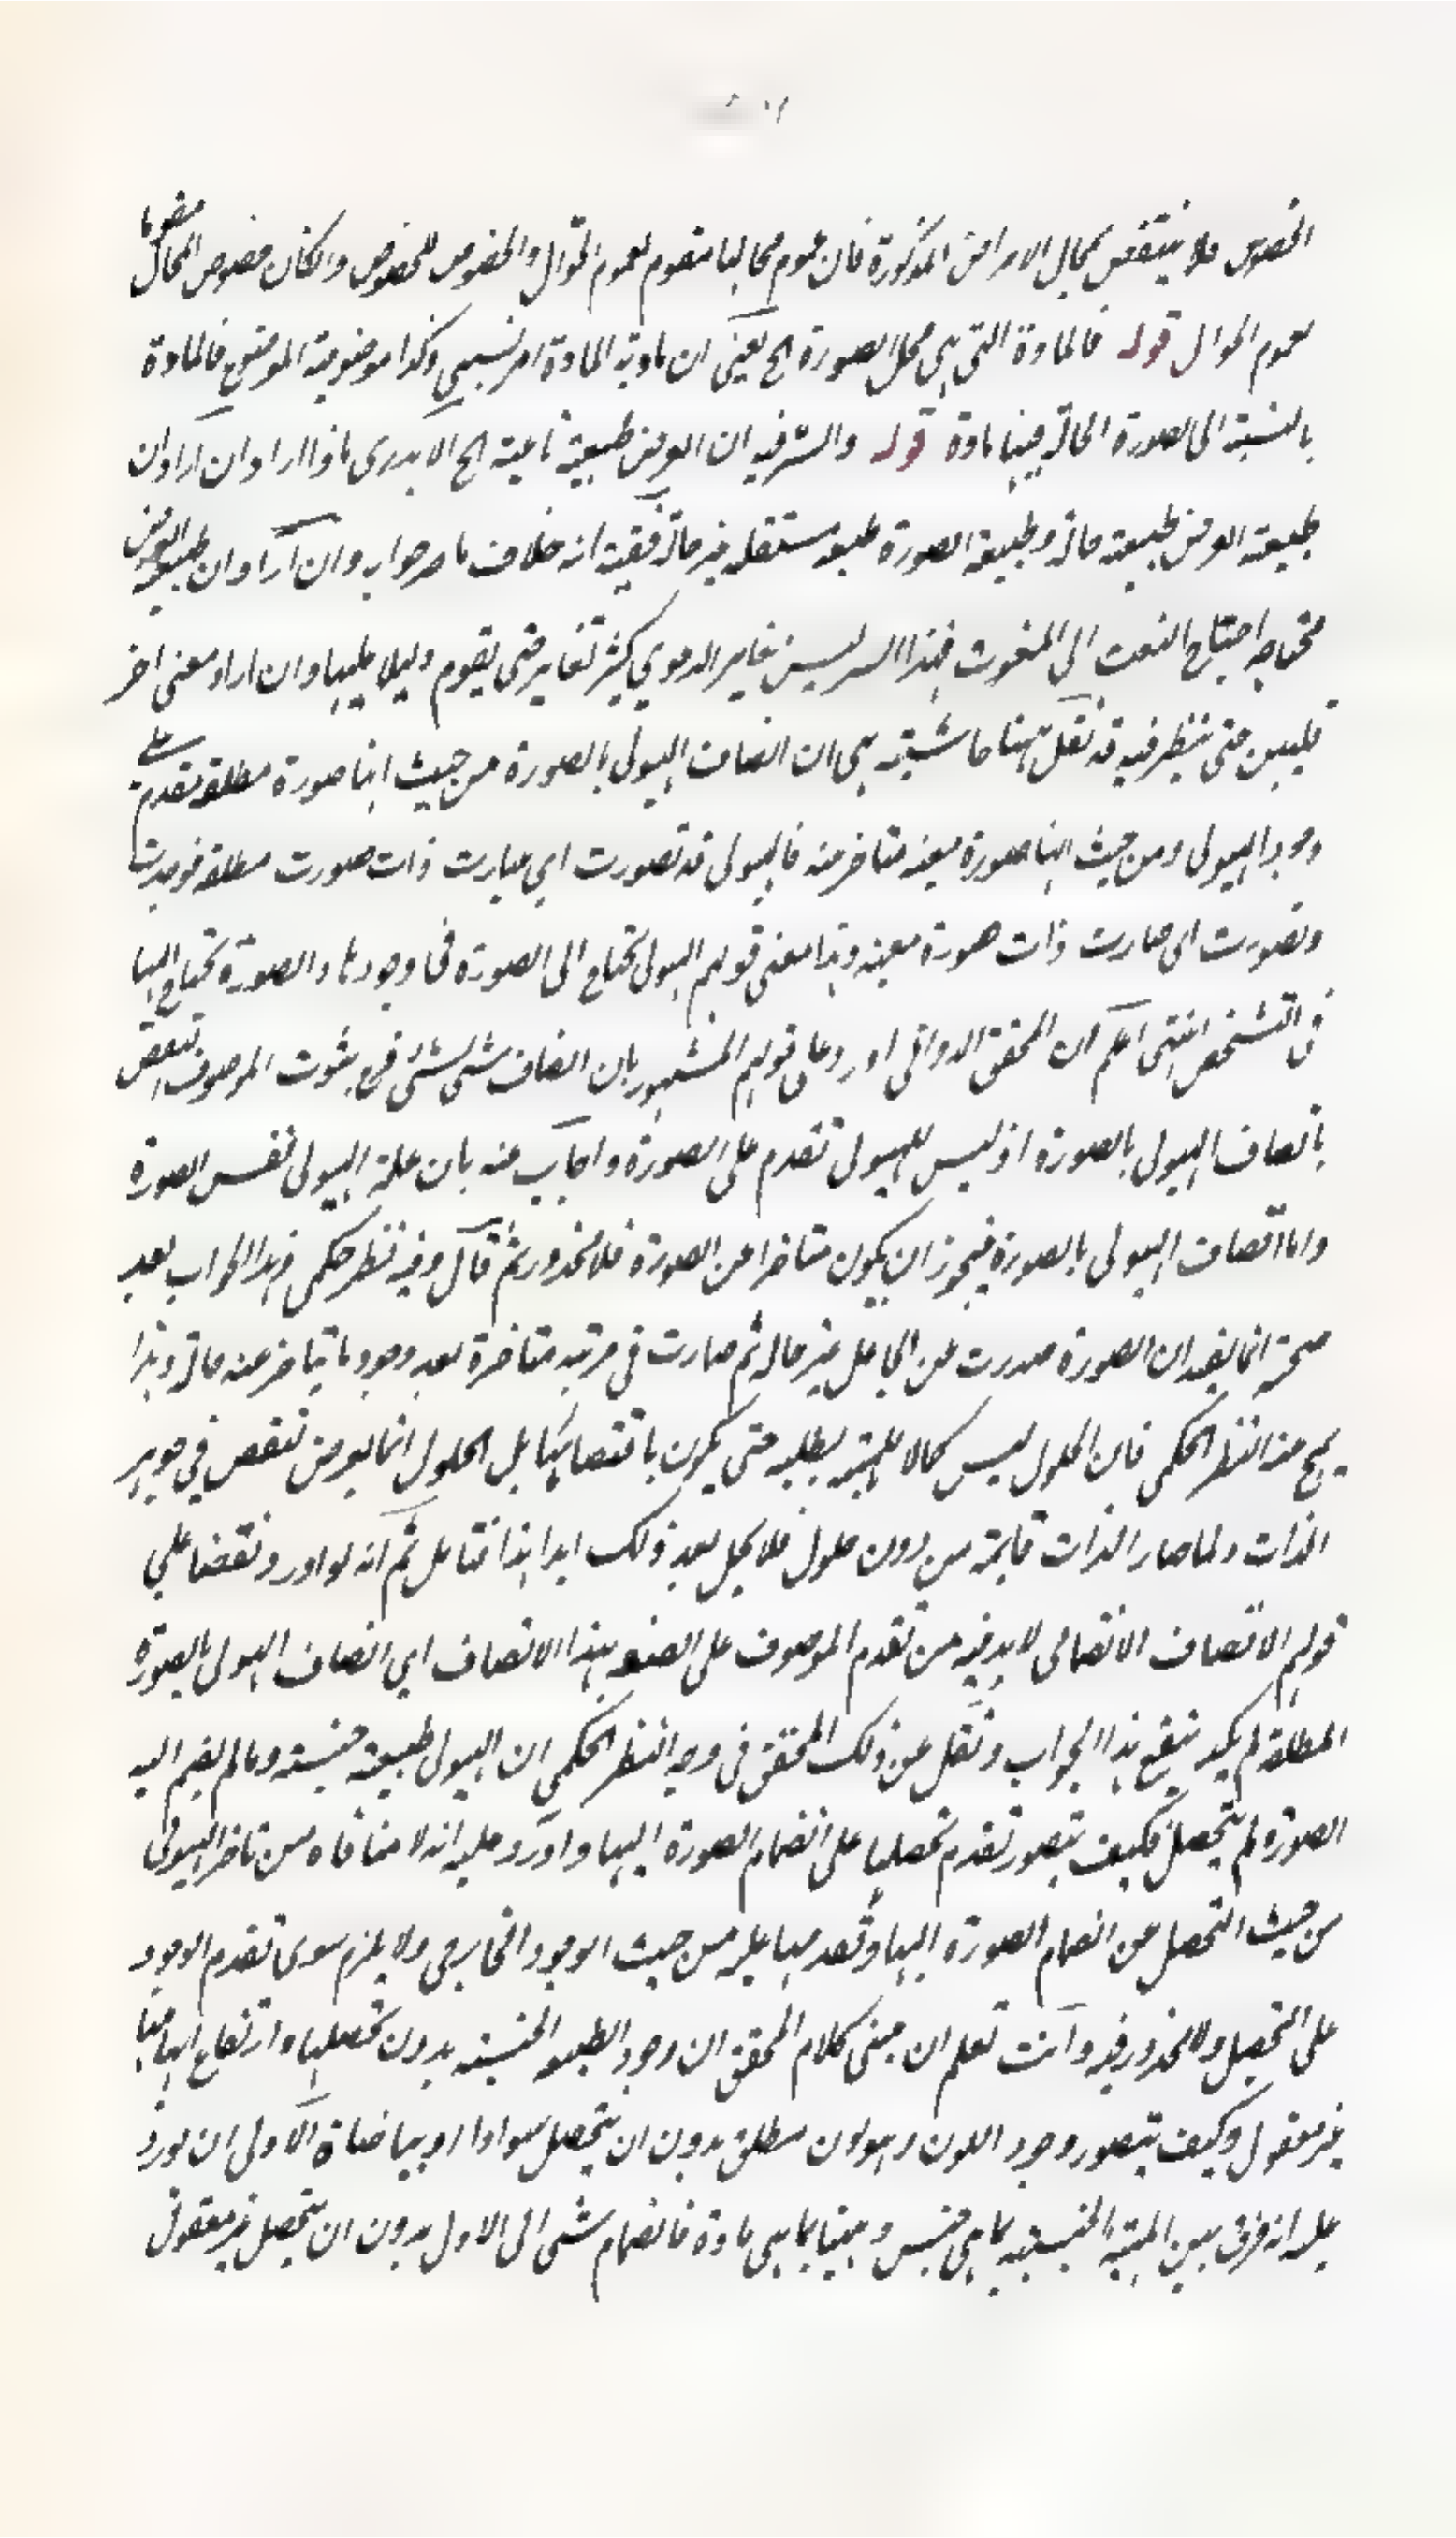 الخصوص فلا ينتقض بمحال الاعراض المذكورة فان عموم محالها متقوم لعموم الحوال والخصوص للخصوص والكان خصوص المحال مقوما
لعموم الحوال قوله فالمادة التى هى محل الصورة الخ يعنى ان مادية المادة امر نسبي وكذا موضوعية الموضوع فالمادة
بالنسبة الى الصورة الحالة فيها مادة قوله والسر فيه ان العرض طبيعة ناعتية الخ لا يدرى ماذا اراد ان اراد ان
طبيعة العرض طبيعة حالة وطبيعة الصورة طبيعة مستقلة غير حالة ففيه انه خلاف ما صرحوا به وان اراد ان طبيعة العرض
محتاجه احتياج النعت الى المنعوت فهذا السر ليس يغاير الدعوي كثير تغاير حتى يقوم دليلا عليها وان اراد معنى اخر
فليبين حتى ينظر فيه قد نقل ههنا حاشية هى ان اتصاف الهيولى بالصورة من حيث انها صورة مطلقة تقدم على
وجود الهيولى ومن حيث انها صورة معينه متاخر عنه فالهيولى قد تصورت اي صارت ذات صورت مطلقة فوجدت
وتصورت اى صارت ذات صورة معينه وهذا معنى قولهم الهيولى تحتاج الى الصورة فى وجودها والصورة تحتاج اليها
فى التشخص انتهى اعلم ان المحقق الدوانى اورد على قولهم المشهور بان اتصاف شئ لشئ فرع ثبوت الموصوف النقض
باتصاف الهيولى بالصورة اذ ليس للهيولى تقدم على الصورة واجاب عنه بان علة الهيولى نفس الصورة
واما اتصاف الهيولى بالصورة فيجوز ان يكون متاخرا عن الصورة فلا محذور ثم قال وفيه نظر حكمى فهذا الجواب بعد
صحته انما يفيد ان الصورة صدرت عن الجاعل غير حالة ثم صارت فى مرتبة متاخرة بعد وجود ما يتاخر عنه حالة وهذا
يمج عنه النظر الحكمى فان الحلول ليس كمالا للهية يطلبه حتى يكون باقتضائها بل الحلول انما يعرض لنقص في جوهر
الذات ولما صار الذات قايمة من دون حلول فلا يحل بعد ذلك ابدا هذا فتامل ثم انه لو اورد نقضا علي
قولهم الاتصاف الانضمامى لابد فيه من تقدم الموصوف على الصفه بهذا الاتصاف اي اتصاف الهيولى بالصورة
المطلقة لم يكد ينفع هذا الجواب ونقل عن ذلك المحقق فى وجه النظر الحكمي ان الهيولى طبيعة جنسية ومالم يضم اليه
الصورة لم يتحصل فكيف يتصور تقدم تحصلها على انضمام الصورة اليها واورد عليه انه لا منافاة من تاخر الهيولى
من حيث التحصل عن انضمام الصورة اليها وتقدمها عليه من حيث الوجود الخارجى ولا يلزم سوى تقدم الوجود
على التحصل ولا محذور فيه وانت تعلم ان مبنى كلام المحقق ان وجود الطبيعة الجنسية بدون تحصلها وارتفاع ابهامها
غير معقول وكيف يتصور وجود اللون وهو لون مطلق بدون ان يتحصل سوادا او بياضا فالاولى ان يورد
عليه انه فرق بين الهية الجنسية بما هى جنس وبينها بما هى مادة فانضمام شئ الى الاول بدون ان يتحصل غير معقول